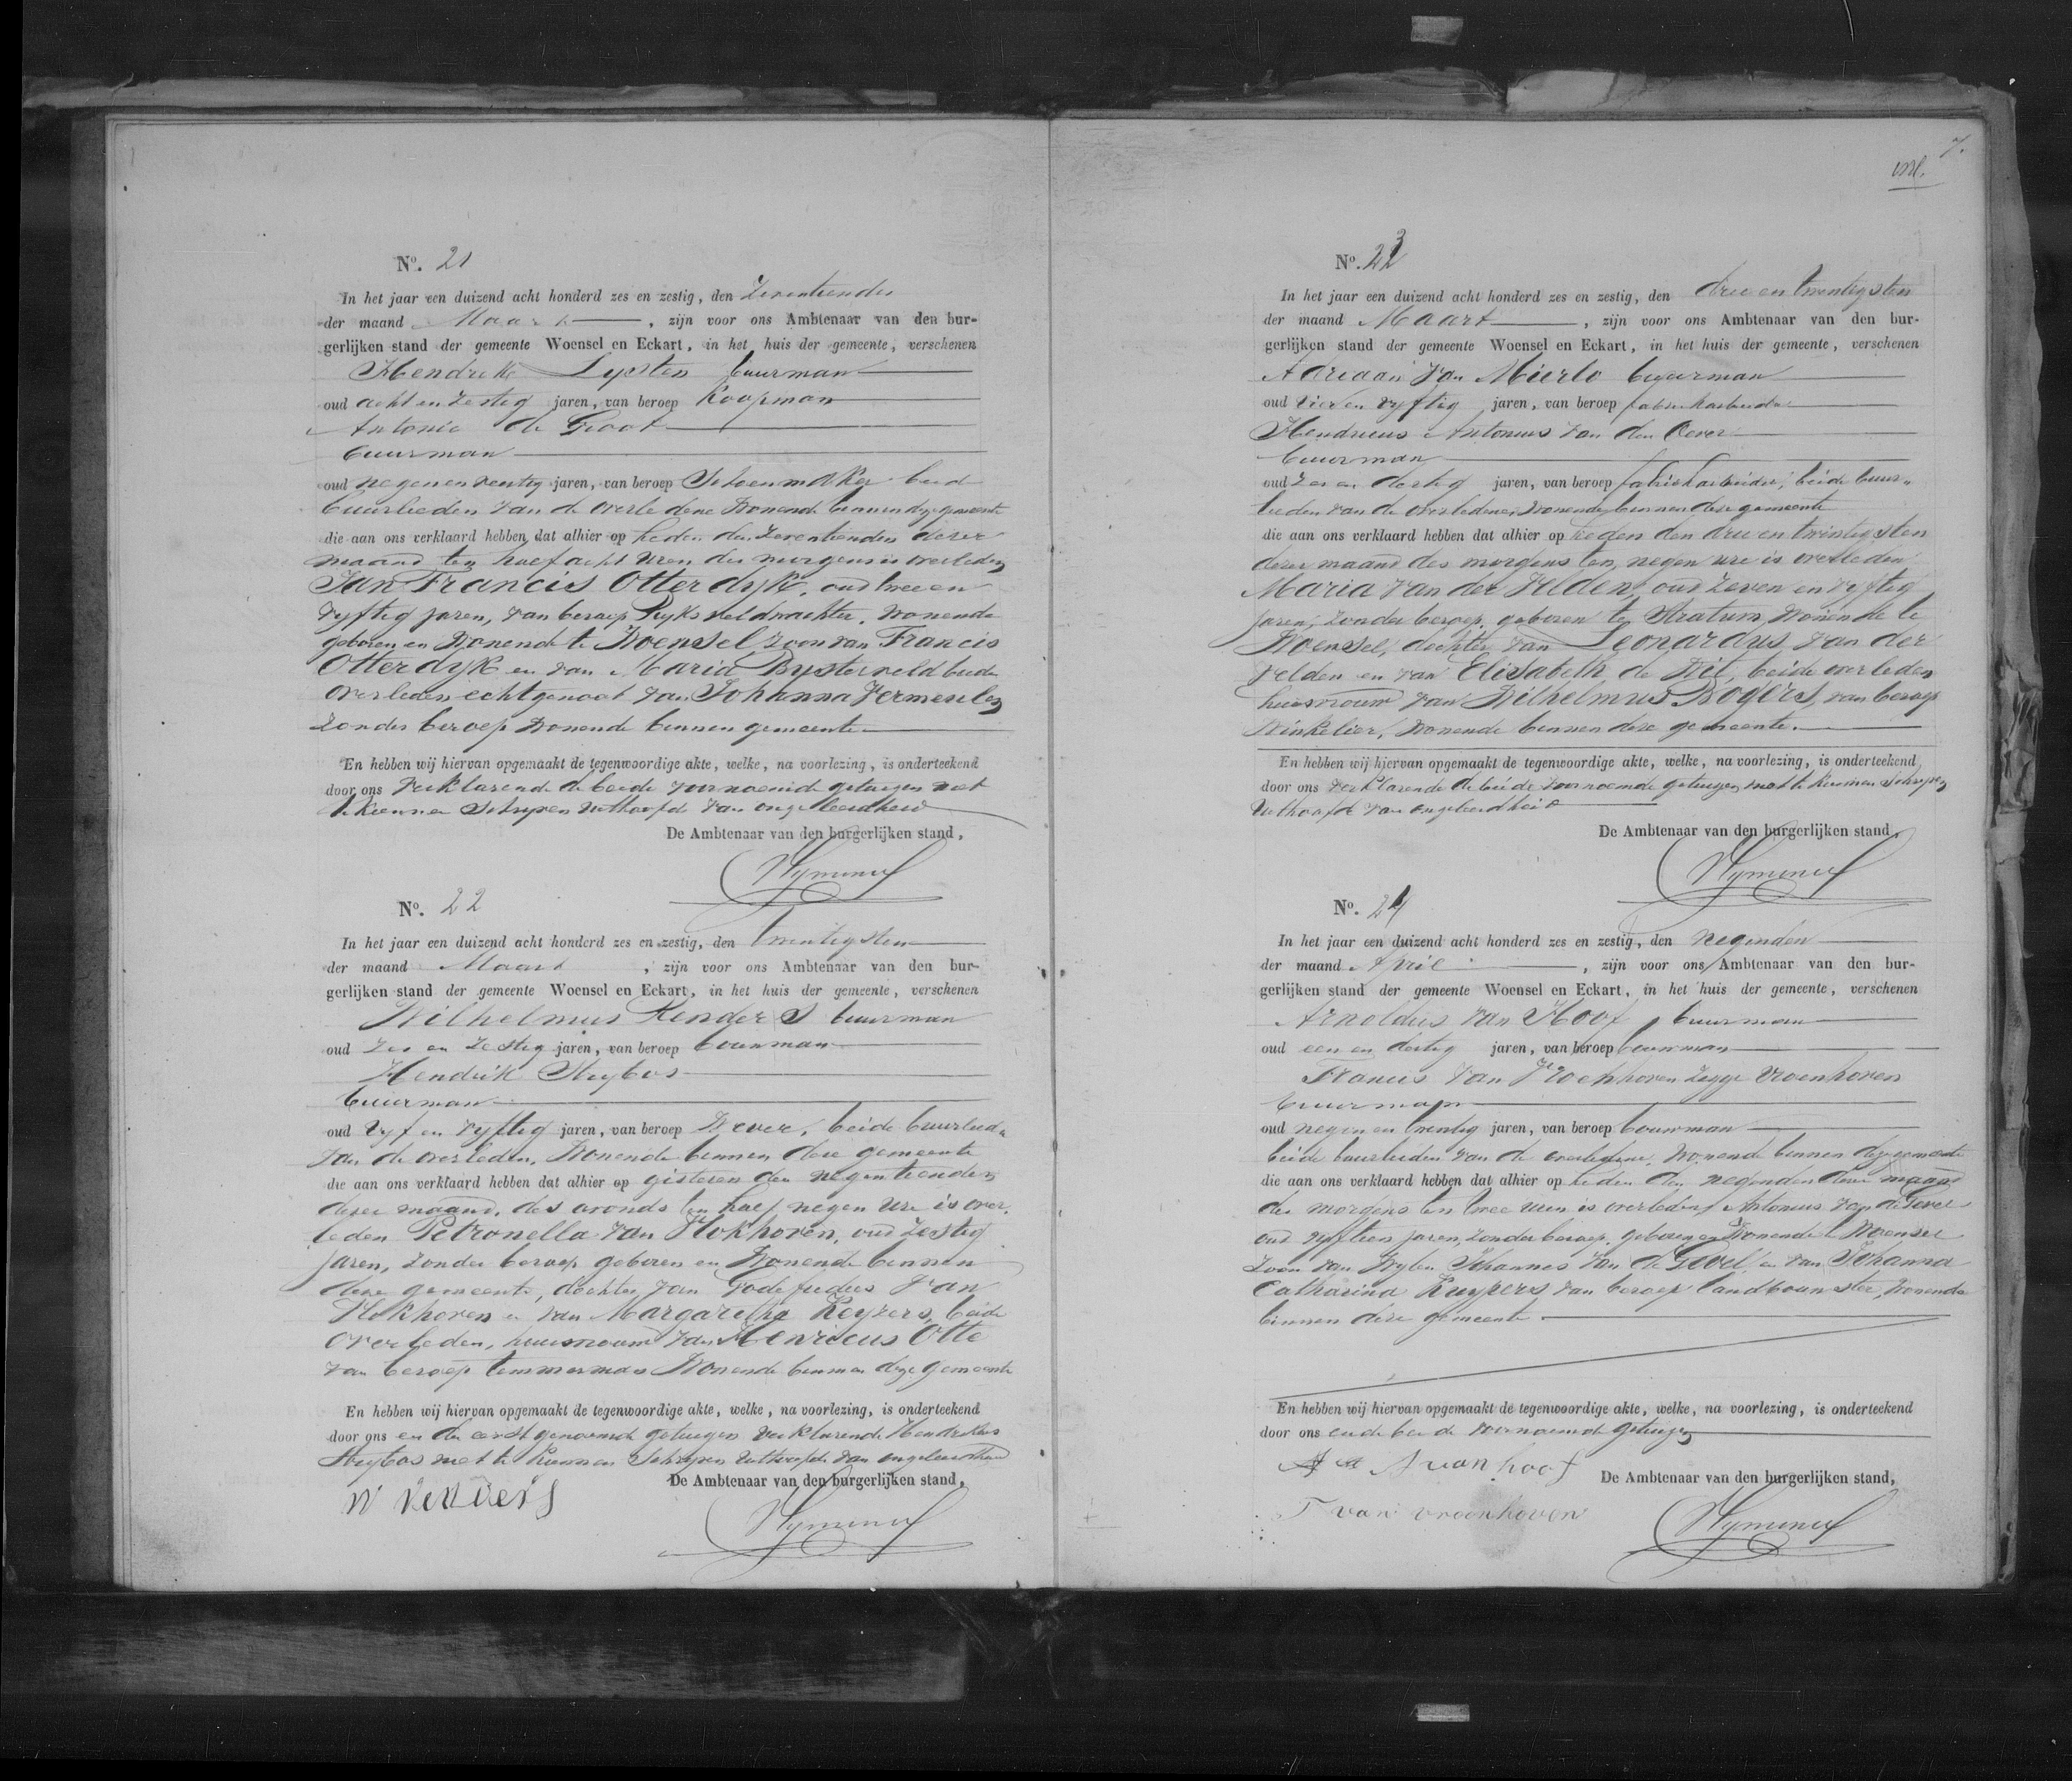 No. 21
In het jaar een duizend acht honderd zes en zestig, den Zeventienden
der maand Maart, zijn voor ons Ambtenaar van den bur-
gerlijken stand der gemeente Woensel en Eckart, in het huis der gemeente, verschenen
Hendrik Lysten buurman
oud acht en Zestig jaren, van beroep Koopman
Antonie de Groot
buurman
oud negen en jaren, van beroep Schoenmaker beid
buurlieden van de overledene Wonende binnen deze gemeente
die aan ons verklaard hebben dat alhier op heden den Zeventienden dezer
maand ten half acht uren des morgens is overleden
Jan Francis Otterdyk, oud twee en
vyftig jaren, van beroep Ryks veldwachter, Wonende
geboren en Wonende te Woensel zoon van Francis
Otterdyk en van Maria Bysterveld beide
overleden echtgenoot van Johanna Vermeulen
Zonder beroep Wonende binnen gemeente
En hebben wij hiervan opgemaakt de tegenwoordige akte, welke, na voorlezing, is onderteekend
door ons verklarende de beide voornoemde getuigen niet
te kunnen Schryven uithoofde van ongeleerdheid
De Ambtenaar van den burgerlijken stand,
No. 22
In het jaar een duizend acht honderd zes en zestig, den twintigsten
der maand Maart, zijn voor ons Ambtenaar van den bur-
gerlijken stand der gemeente Woensel en Eckart, in het huis der gemeente, verschenen
Wilhelmus Renders buurman
oud Zes en Zestig jaren, van beroep bouwman
Hendrik Stuybos
buurman
oud Vyf en Vyftig jaren, van beroep Wever, beide buurlieden
van de overleden, Wonende binnen deze gemeente
die aan ons verklaard hebben dat alhier op gisteren den negentienden
dezer maand, des avonds ten half negen ure is over
leden Petronella van Hokhoven, oud Zestig
jaren, Zonder beroep geboren en Wonende binnen
deze gemeente, dochter van Godefridus van
Hokhoven en van Margaretha Keyzers, beide
overleden, huisvrouw van Henricus Otte
van beroep timmerman Wonende binnen deze gemeente
En hebben wij hiervan opgemaakt de tegenwoordige akte, welke, na voorlezing, is onderteekend
door ons en den eerstgenoemde getuigen verklarende Hendrikus
Stuybos niet te kunnen Schryven uithoofde van ongeleerdheid
De Ambtenaar van den burgerlijken stand,
W renders
7.
No. 23
In het jaar een duizend acht honderd zes en zestig, den drie en twintigsten
der maand Maart, zijn voor ons Ambtenaar van den bur-
gerlijken stand der gemeente Woensel en Eckart, in het huis der gemeente, verschenen
Adriaan van Mierlo buurman
oud Vier en vyftig jaren, van beroep fabriekarbeider
Hendricus Antonius van den Oever
buurman
oud Zes en dertig jaren, van beroep fabriekarbeider, beide buur„
lieden van de overledene, Wonende binnen deze gemeente
die aan ons verklaard hebben dat alhier op heden den drie en twintigsten
dezer maand des morgens ten negen ure is overleden
Maria van der Velden, oud Zeven en vyftig
jaren, Zonder beroep, geboren te Stratum, Wonende te
Woensel, dochter van Leonardus van der
Velden en van Elisabeth de Wit, beide overleden
huisvrouw van Wilhelmus Rogers, van beroep
Winkelier, Wonende binnen deze gemeente.
En hebben wij hiervan opgemaakt de tegenwoordige akte, welke, na voorlezing, is onderteekend
door ons verklarende de beide voornoemde getuigen niet te kunnen Schryven
uithoofde van ongeleerdheid
De Ambtenaar van den burgerlijken stand,
No. 24
In het jaar een duizend acht honderd zes en zestig, den negenden
der maand April, zijn voor ons Ambtenaar van den bur-
gerlijken stand der gemeente Woensel en Eckart, in het huis der gemeente, verschenen
Arnoldus van Hoof, buurman
oud een en dertig jaren, van beroep bouwman
Francis van zegge Vroenhoven
buurman
oud negen en twentig jaren, van beroep bouwman
beide buurlieden van de overledene, Wonende binnen deze gemeente
die aan ons verklaard hebben dat alhier op heden den negenden dezer maand
des morgens ten twee uren is overleden Antonius van de Gevel
oud vyftien jaren, Zonder beroep, geboren en Wonende te Woensel
Zoon van Wylen Johannes van de Gevel, en van Johanna
Catharina Kuypers van beroep landbouwster, Wonende
binnen deze gemeente
En hebben wij hiervan opgemaakt de tegenwoordige akte, welke, na voorlezing, is onderteekend
door ons en de beide voornoemde getuigen
A van hoof
De Ambtenaar van den burgerlijken stand,
F van vroenhoven